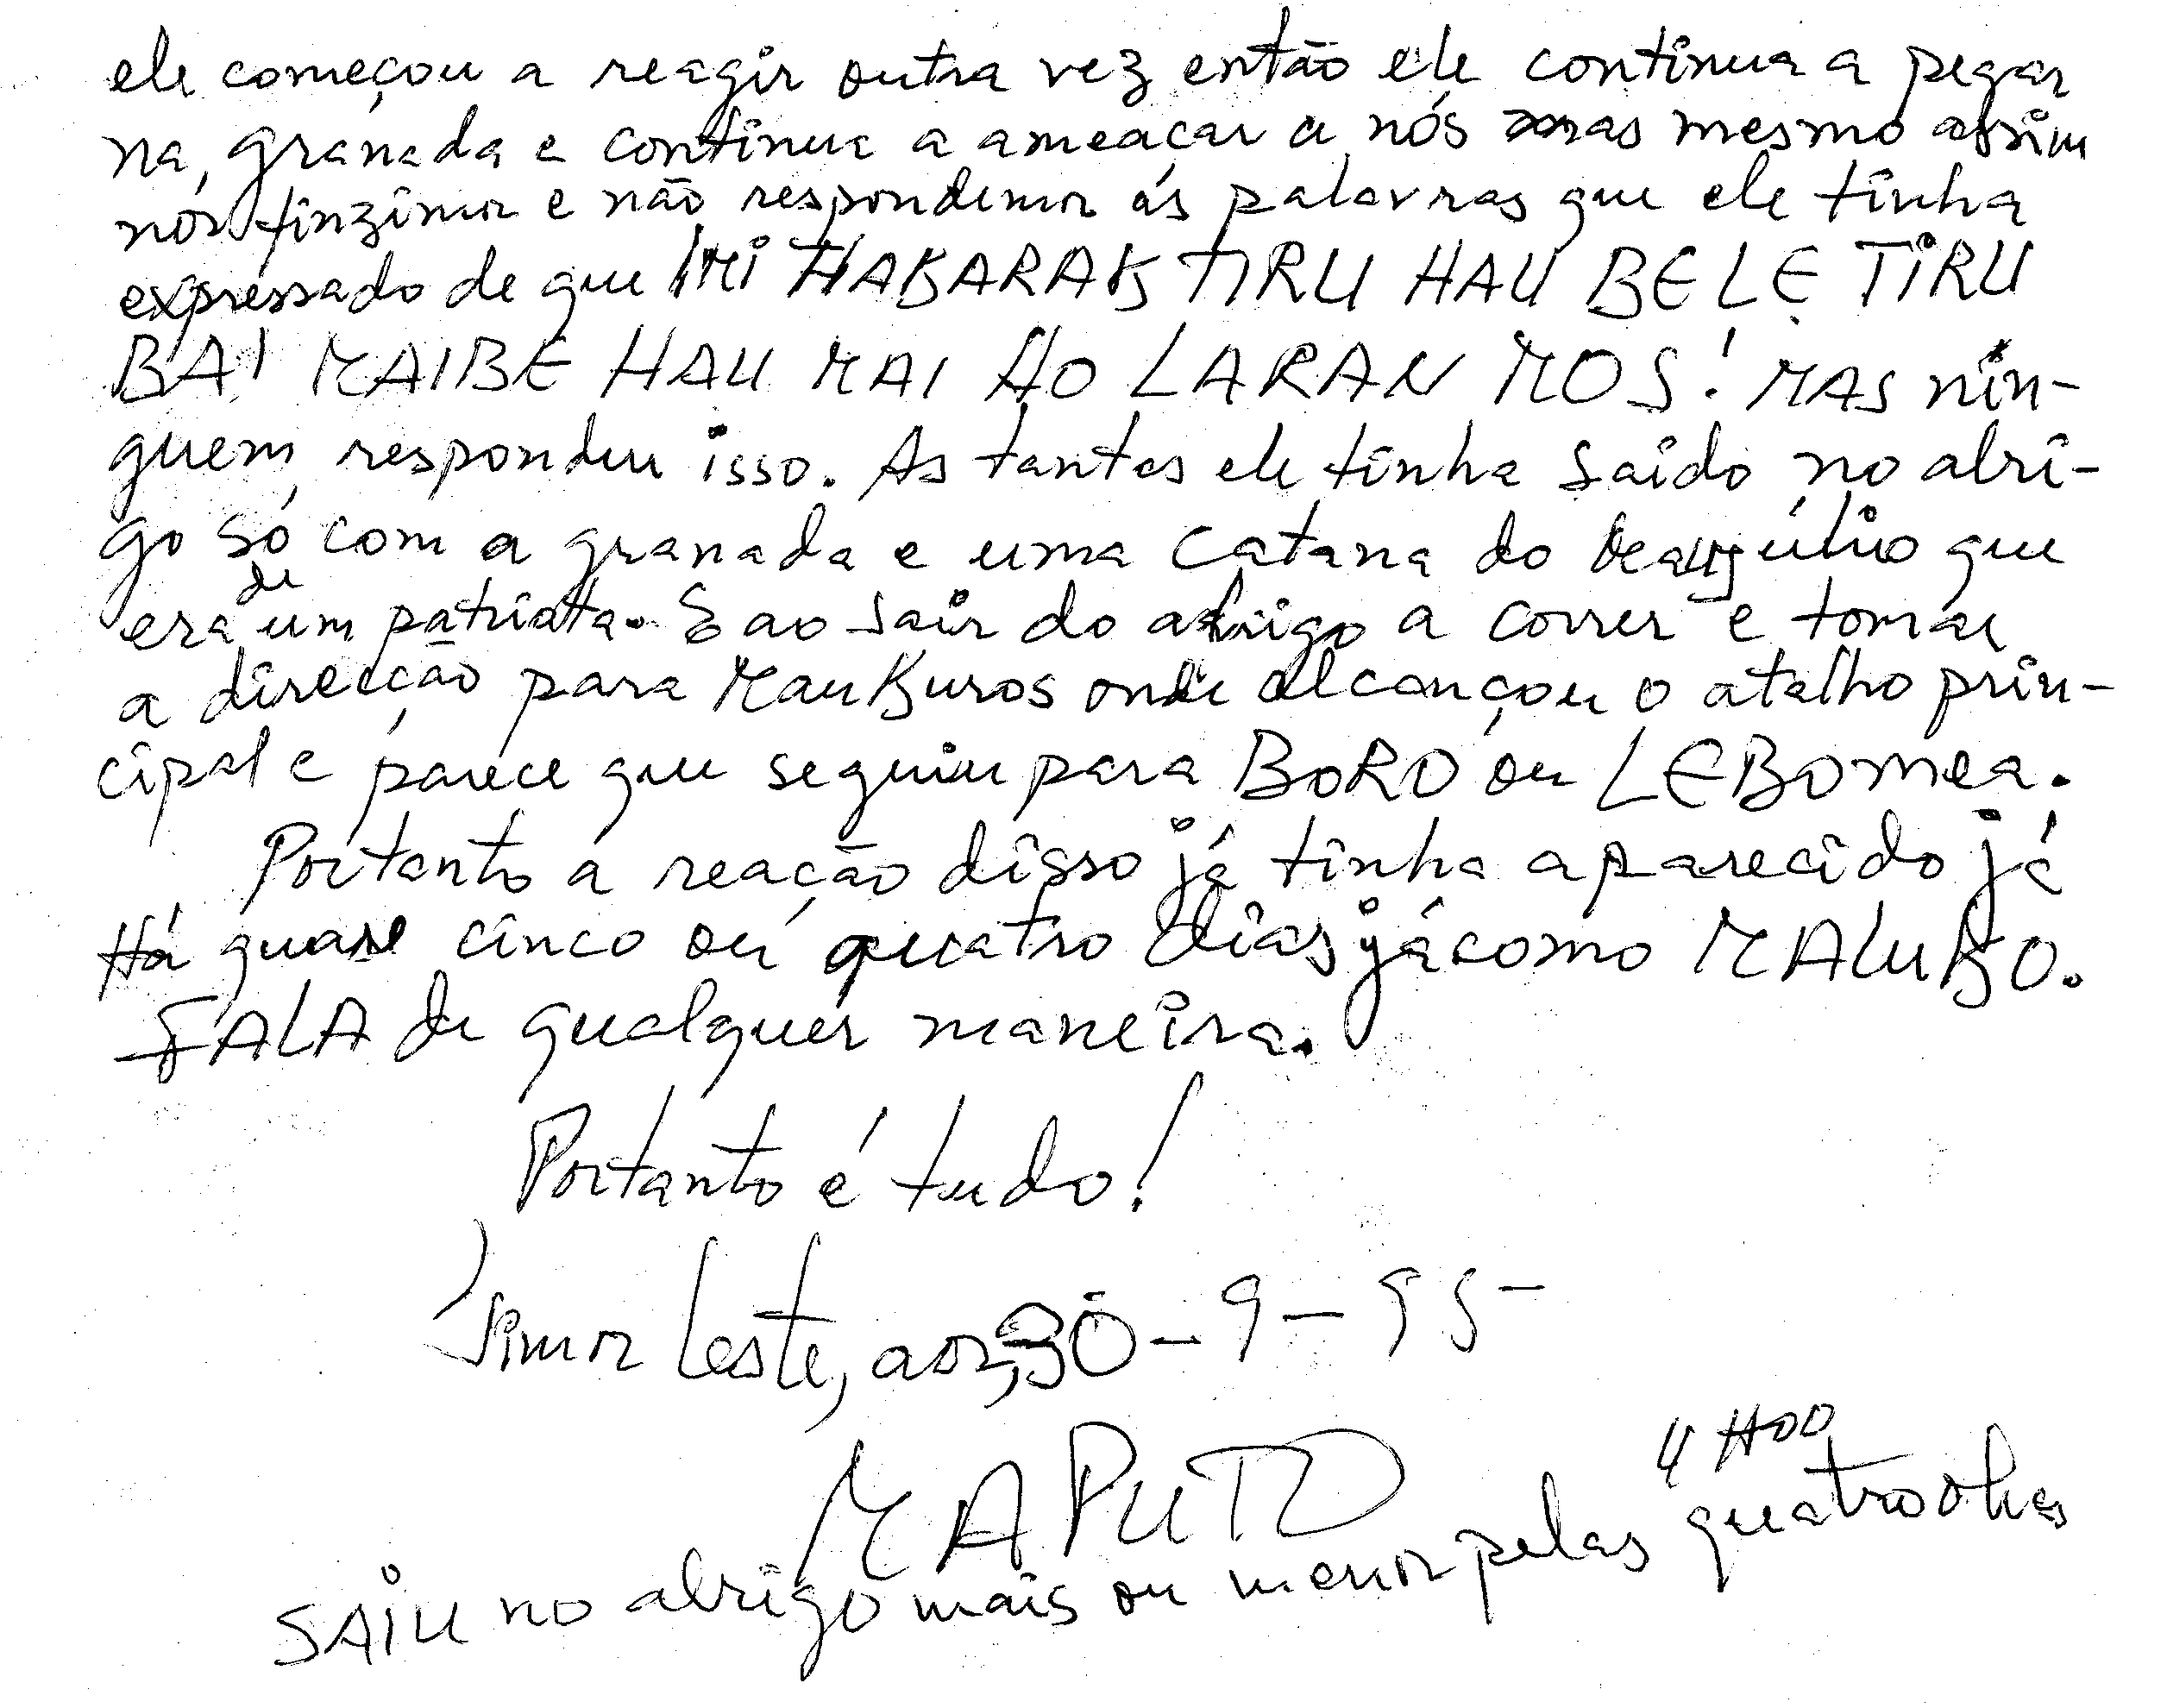 ele começou a reagir outra vez então ele continua a pegar
na granada e continua a ameaçar a nós mas mesmo assim
nós finzimos e não respondemos ás palavras que ele tinha
expressado de que IMI HAKARAK TIRU HAU BELE TIRU
BA! MAIBE HAU MAI HO LARAN MOS! MAS nin-
guem respondeu isso. As tantas ele tinha saido no abri-
go só com a granada e uma catana do que
era de um patriota. E ao sair do abrigo a correr e tomar
a direcção para MauKuros onde alcançou o atalho prin-
cipal e parece que seguiu para BORO ou LEBOmea.
Portanto a reação disso já tinha aparecido já
Há quase cinco ou quatro dias já como MALUKO.
FALA de qualquer maneira.
Portanto é tudo!
Timor Leste, aos, 30-9-95-
MAPUTO
4H00
SAIU no abrigo mais ou menos pelas quatro